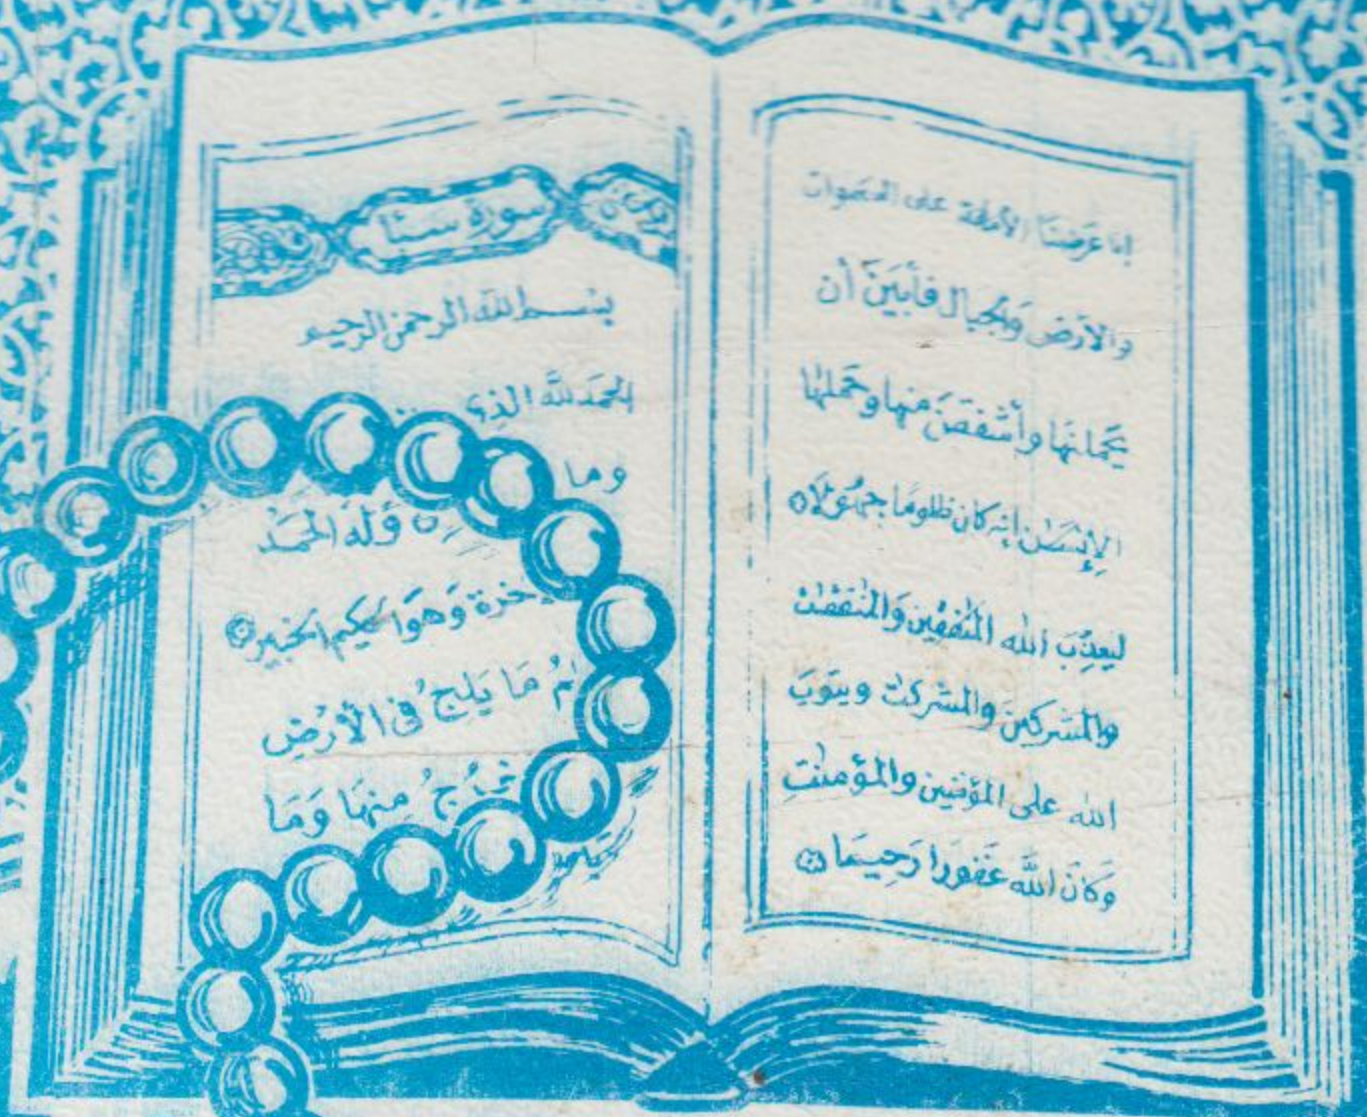 إنا عَرَضنَا الأمانة على السموات
والأرض وَالجِبَال فأبَينَ أن
يَحملنَهَا وأشفَقنَ منها وحَملها
الإنسَن إنه كان ظلومًا جهُولا
ليعذِّبَ الله المُنَفِقِين وَالمُنَفِقَت
والمشركين والمشركت ويتوبَ
الله على المؤمنين والمؤمنتِ
وَكانَ اللَّه غَفورا رَحِيمَا
سورة سبأ
بسم الله الرحمن الرحيم
الحَمدُ للَّه الذي
وما
وَلَهُ الحَمدُ
وَهوَ الحَكيم الخَبير
مَا يَلِجُ في الأرْضِ
مِنهَا وَمَا